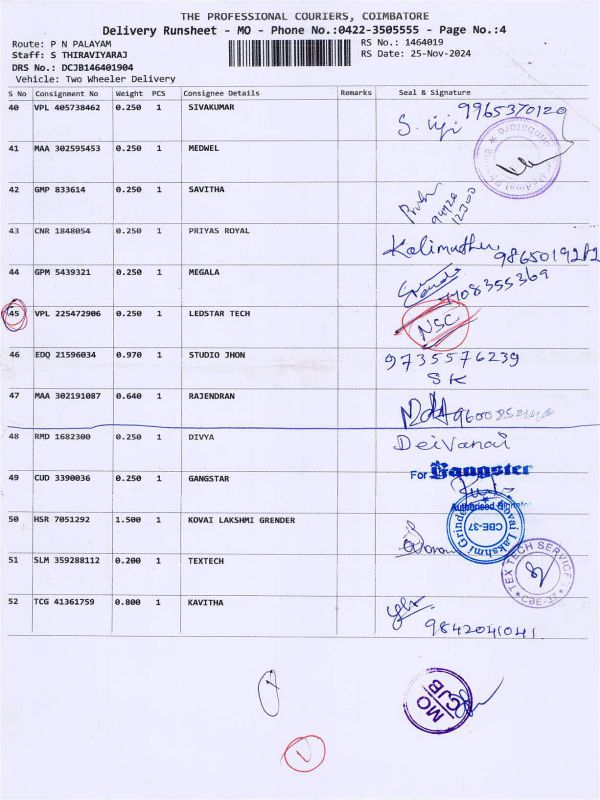 THE PROFESSIONAL COURIERS, COIMBATORE
Delivery Runsheet - MO - Phone No.:0422-3505555 - Page No.:4
Route: P N PALAYAM RS No.: 1464019
Staff: S THIRAVIYARAJ RS Date: 25-Nov-2024
DRS No.: DCJB146401904
Vehicle: Two Wheeler Delivery
S No Consignment No Weight PCS Consignee Details Remarks Seal & Signature
40 VPL 405738462 0.250 1 SIVAKUMAR S. Viji 9965370120
41 MAA 302595453 0.250 1 MEDWEL
42 GMP 833614 0.250 1 SAVITHA
43 CNR 1848054 0.250 1 PRIYAS ROYAL Kalimuthu
44 GPM 5439321 0.250 1 MEGALA
45 VPL 225472906 0.250 1 LEDSTAR TECH NSC
46 EDQ 21596034 0.970 1 STUDIO JHON 9735576239
SK
47 MAA 302191087 0.640 1 RAJENDRAN
48 RMD 1682300 0.250 1 DIVYA Deivanai
49 CUD 3390036 0.250 1 GANGSTAR For Gangster
Authorised Signatory
50 HSR 7051292 1.500 1 KOVAI LAKSHMI GRENDER Kovai Lakshmi Grinder CBE-37
51 SLM 359288112 0.200 1 TEXTECH TEX TECH SERVICE CBE-37
52 TCG 41361759 0.800 1 KAVITHA
9842041041
MO
CJB